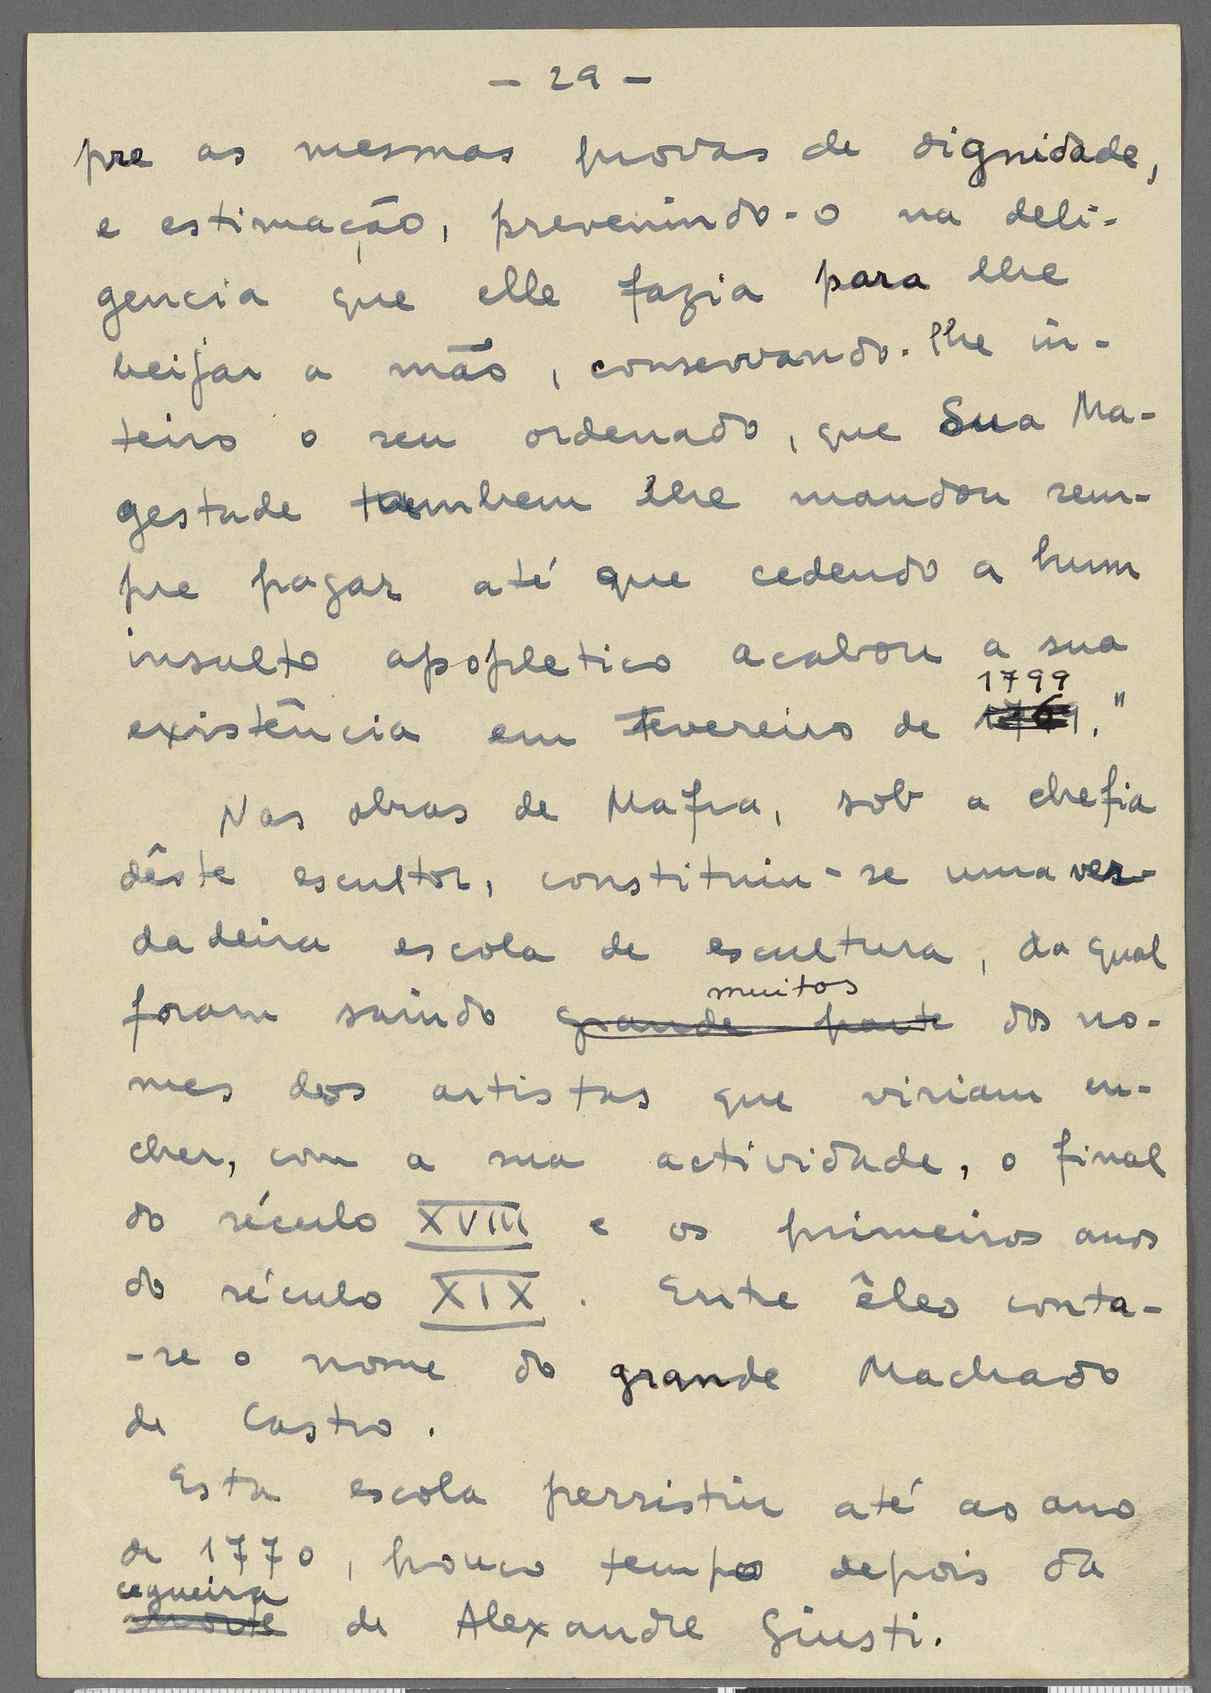 - 29 -
pre as mesmas provas de dignidade,
e estimação, prevenindo-o na deli-
gencia que elle fazia para lhe
beijar a mão, conservando-lhe in-
teiro o seu ordenado, que Sua Ma-
gestade tambem lhe mandou sem-
pre pagar até que cedendo a hum
insulto apopletico acabou a sua
1799
existência em Fevereiro de 1761."
Nas obras de Mafra, sob a chefia
dêste escultor, constituiu-se uma ver-
dadeira escola de escultura, da qual
muitos
foram saindo grande parte dos no-
mes dos artistas que viriam en-
cher, com a sua actividade, o final
do século XVIII e os primeiros anos
do século XIX. Entre êles conta-
-se o nome do grande Machado
de Castro.
Esta escola persistiu até ao ano
de 1770, pouco tempo depois da
cegueira
morte de Alexandre Giusti.